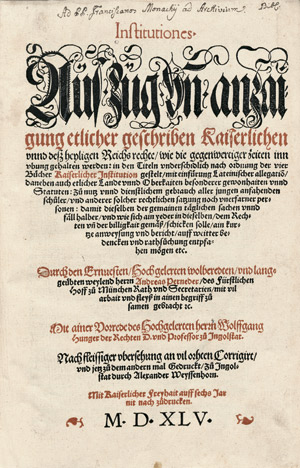 Ad PP. Franciscanos Monachij ad Archivium.
Institutiones.
Außzüg vñ anzai-
gung etlicher geschriben Kaiserlichen
vnnd deß heyligen Reichs rechte/ wie die gegenwertiger zeiten inn
vbung gehalten werden: in den Titeln vnderschidlich nach ordnung der vier
Bücher Kaiserlicher Institution gestelt/ mit einfürung Lateinischer allegatiō/
daneben auch etlicher Lande vnnd Oberkaiten besonderer gewonhaiten vnnd
Statuten: Zů nutz vnnd dienstlichem gebrauch aller jungen anfahenden
schůler/ vnd anderer solcher rechtlichen satzung noch vnerfarner per-
sonen: damit dieselben der gemainen täglichen sachen vnnd
fäll halber/ vnd wie sich ain yeder in dieselben/ dem Rech-
ten vñ der billigkait gemäß/ schicken solle/ ain kur-
tze anweysung vnd bericht/ auff weitter be-
dencken vnd rathsůchung entpfa-
hen mögen etc.
Durch den Ernuesten/ Hochgelerten wolberedten/ vnd lang-
geübten weylend herrn Andreas Perneder/ des Fürstlichen
Hoff zů München Rath vnd Secretarien/ mit vil
arbait vnd fleyß in ainen begriff zů
samen gebracht etc.
Mit ainer Vorred des Hochgelerten herrn Wolffgang
Hunger der Rechten D. vnd Professor zů Ingolstat.
Nach fleissiger vbersehung an vil orhten Corrigirt/
vnd jetz zů dem andern mal Gedruckt/ Zů Ingol-
stat durch Alexander Weyssenhorn.
Mit Kaiserlicher Freyhait auff sechs Jar
nit nach zůdrucken.
M. D. XLV.